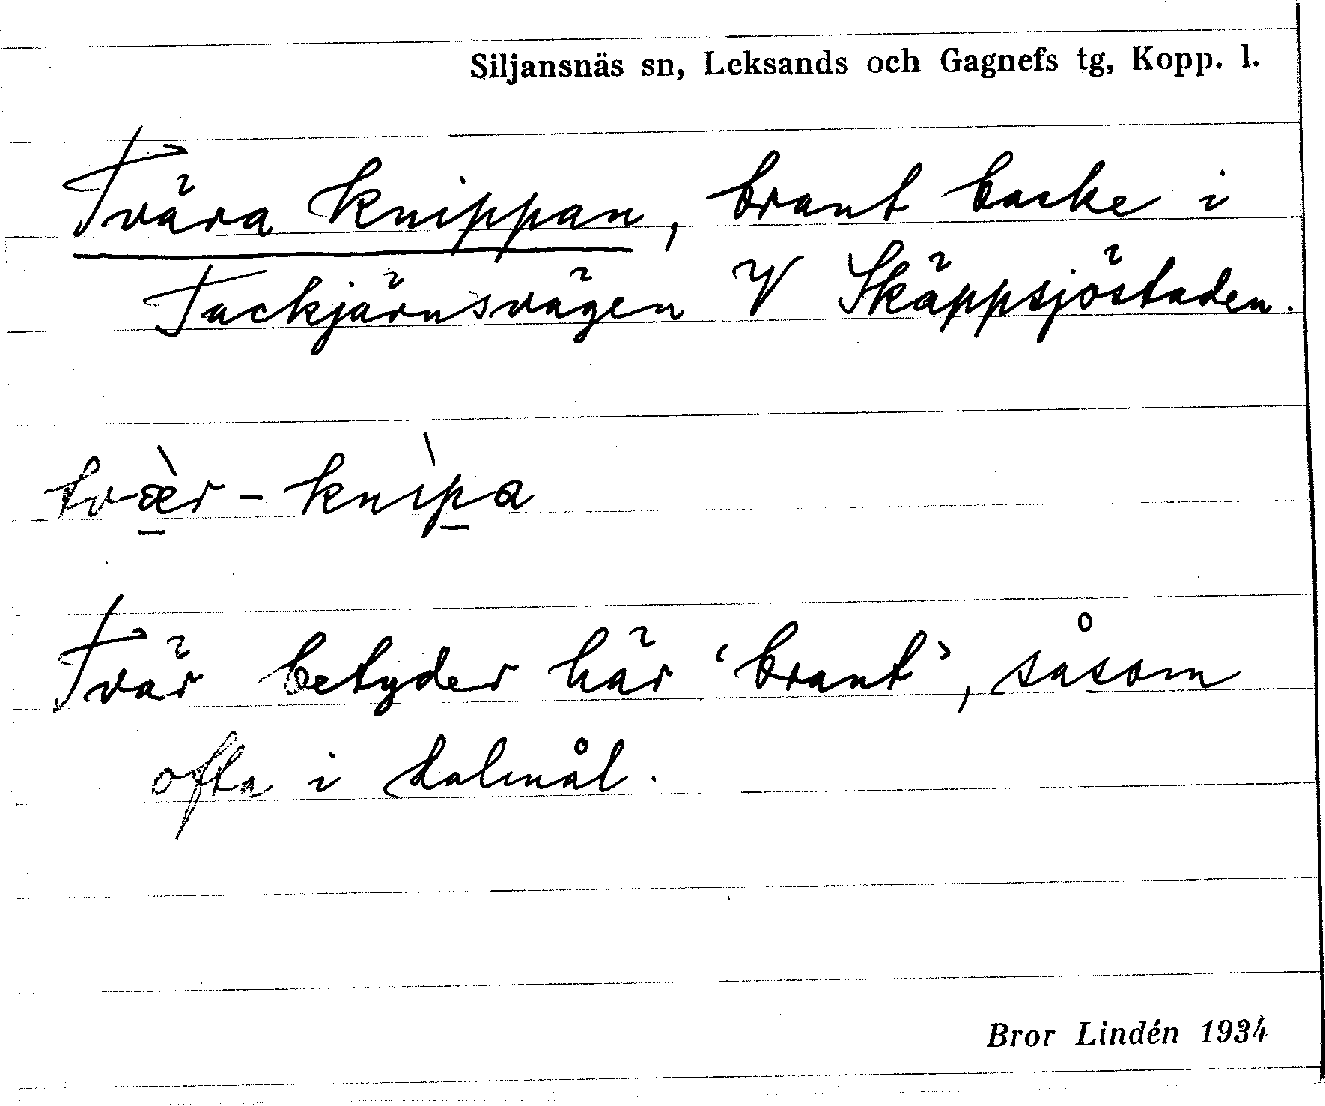 Siljansnäs sn, Leksands och Gagnefs tg, Kopp. l.
Tvära knippan, brant backe i
Tackjärnsvägen V Skäppsjöstaden.
tvæ̀r - knìpa
Tvär betyder här ‘brant’, såsom
ofta i dalmål.
Bror Lindén 1934